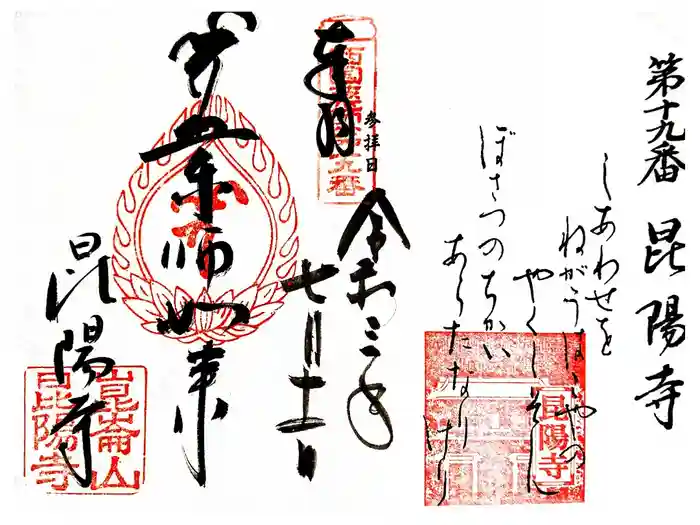 第十九番 昆陽寺
しあわせを
ねがうはこやの
やくしそん
ぼさつのちかい
あらたなりけり
昆陽寺
奉拝
参拝日
令和三年
七月十一日
昆陽寺
崑崙山
昆陽寺